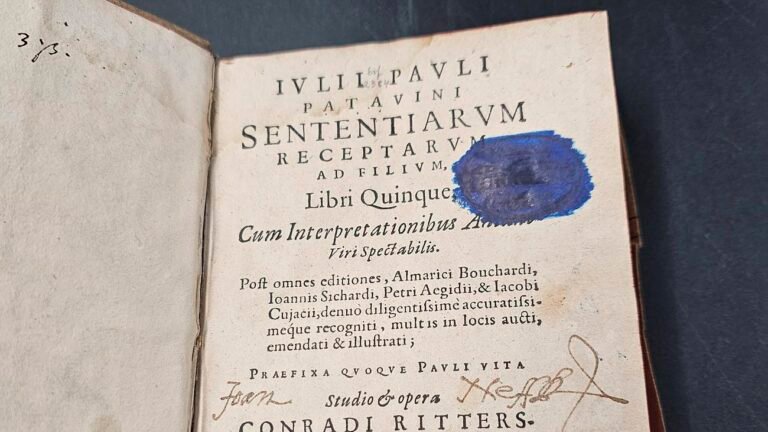 3 3.
IVLII PAVLI
PATAVINI
SENTENTIARVM
RECEPTARVM
AD FILIVM,
Libri Quinque
Cum Interpretationibus
Viri Spectabilis.
Post omnes editiones, Almarici Bouchardi,
Ioannis Sichardi, Petri Aegidii, & Iacobi
Cujacii, denuò diligentissimè accuratissi-
meque recogniti, multis in locis aucti,
emendati & illustrati;
PRAEFIXA QVOQVE PAVLI VITA
Joan
Studio & opera
CONRADI RITTERS-